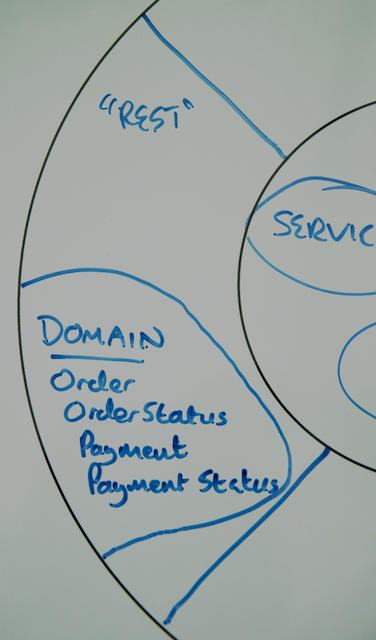 "REST"
SERVIC
DOMAIN
Order
OrderStatus
Payment
Payment Status